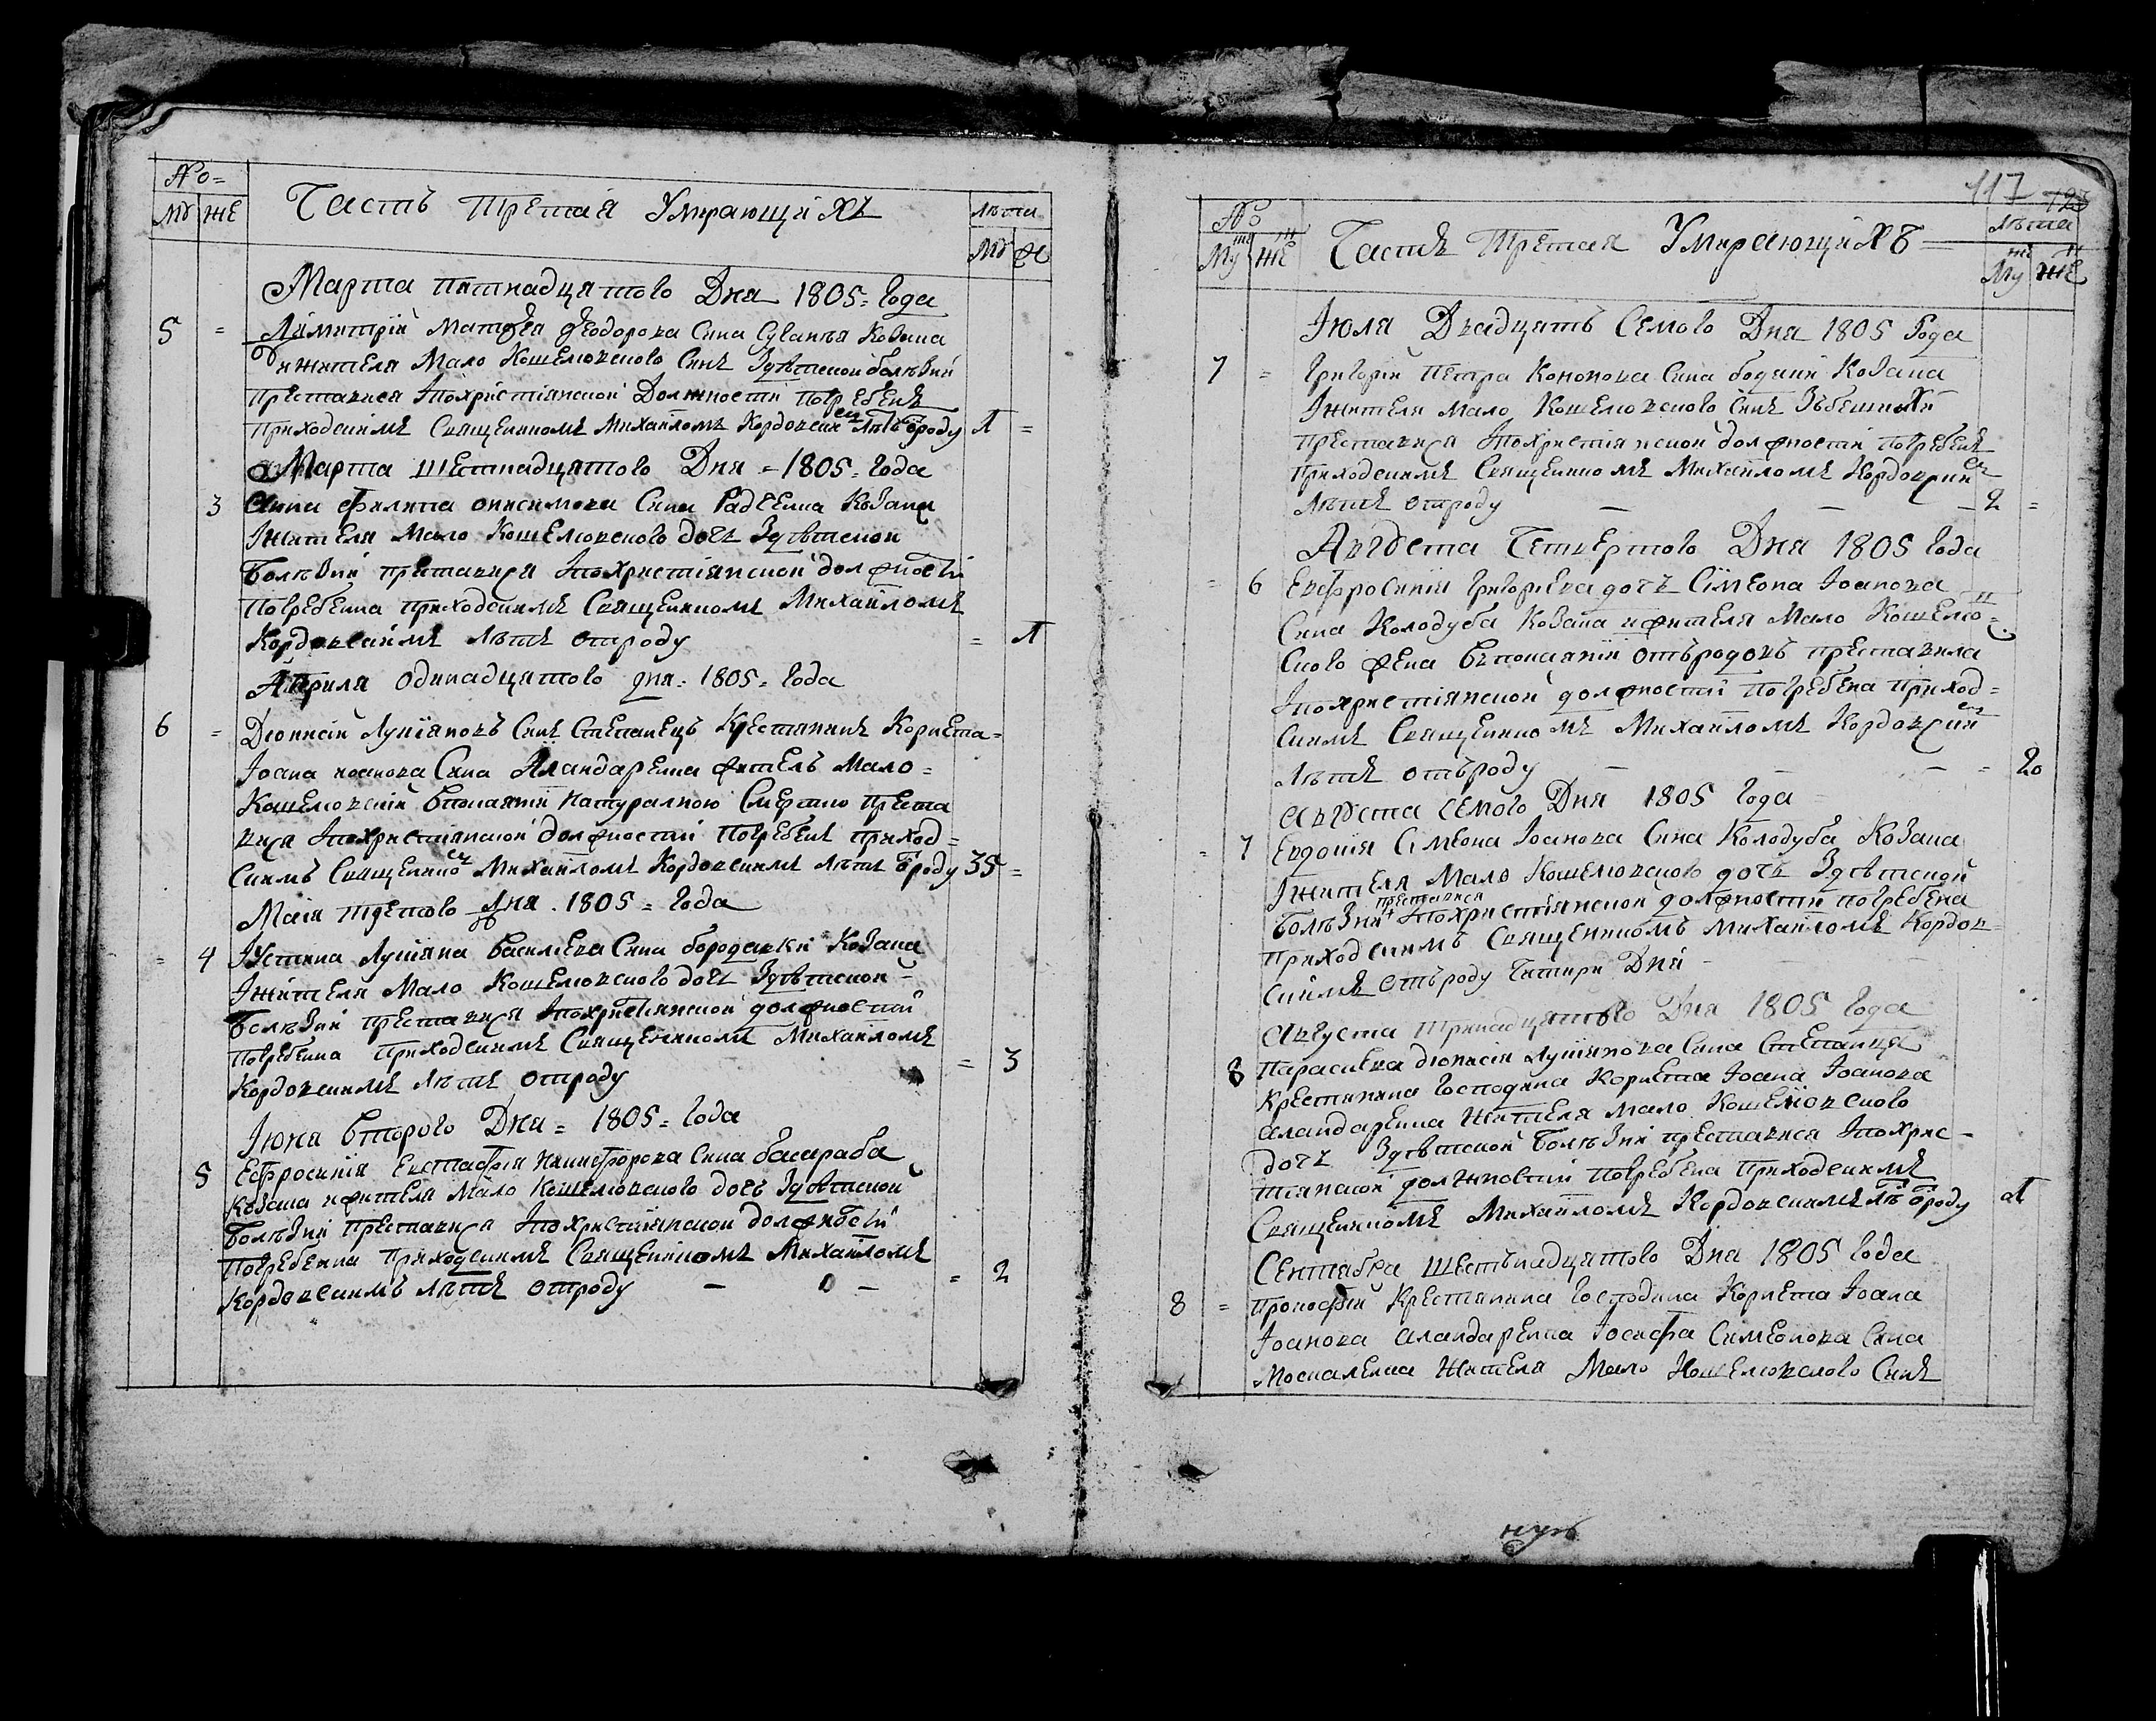 №
Му Же
Часть Третая Умирающихъ
лѣта
Му Ж
Марта пятнадцатого Дня 1805 Года
5 = Димитрий Матфея Феодорова Сина Козака
и жителя Мало Кошелювского Синъ Здѣтской болѣзни
преставися Ипохристіянской Должности погребенъ
приходскимъ Священикомъ Михаиломъ Кордовским лѣтъ отроду 1 =
Марта шестнадцятого Дня = 1805 = Года
3 Анна Филипа Онисимова Сина Радченка Козака
Іжителя Мало Кошелювского дочъ Здѣтской
Болѣзни преставися Ипохристіянской должности
Погребенна приходскимъ Священикомъ Михаиломъ
Кордовскимъ лѣтъ отроду = 1
Априля одинадцятого дня = 1805 = Года
6 = Дионисій Лукіяновъ Синъ Степанецъ Крестянинъ Корнета
Іоана иоанова Сина Иландаренка житель Мало =
Кошелювскій Впокаяній натуралною Смертію преста
вися Ипохристіянской должности погребенъ приход =
скимъ Священико Михаиломъ Кордовскимъ лѣтъ отроду 35 =
Маія третого Дня 1805 = Года
= 4 Іустина Лукіяна Василева Сина бородавки Козака
Іжителя Мало Кошелювского дочъ Здѣтской
Болѣзни преставися Ипохристіянской должности
Погребенна Приходскимъ Священикомъ Михаиломъ
Кордовскимъ лѣтъ отроду = 3
Іюня второго Дня = 1805 = Года
5 Ефросинія Евстафія Никифорова Сина басараба
Козака ижителя Мало Кошелювского дочъ Здѣтской
Болѣзни Преставися Ипохристіянской должности
Погребенна Приходскимъ Священикомъ Михаиломъ
Кордовскимъ лѣтъ отроду = 2
117
№
Муж Жен
Часть Третая Умирающихъ
Лѣта
Муж Жен
Іюля Двадцять Семого Дня 1805 Года
7 = Григорій Петра Кононова Сина Козака
Іжителя Мало Кошелювского Синъ
преставися Ипохристіянской должности погребенъ
Приходскимъ Священикомъ Михаиломъ Кордовским
лѣтъ отроду 2 =
Августа Четвертого Дня 1805 Года
= 6 Евфросинія Григориева дочъ Сімеона Іоанова
Сина Колодуба Козака ижителя Мало Кошелюв
ского жена Впокаяніи отъродовъ преставила
Ипохристіянской должности погребена Приход =
скимъ Священикомъ Михаиломъ Кордовским
лѣтъ отъроду = 20
Августа семого Дня 1805 Года
= 7 Евдокія Сімеона Іоанова Сина Колодуба Козака
Іжителя Мало Кошелювского дочъ Здѣтской
преставися
Болѣзни + Ипохристіянской должности погребена
Приходскимъ Священикомъ Михаиломъ Кордов
скимъ отъроду Чатири Дни
Августа тринадцятого Дня 1805 Года
8 Параскева Дионисія Лукіянова Сина Степанця
Крестянина Господина Корнета Іоана Іоанова
Иландаренка Жителя Мало Кошелювского
дочъ Здѣтской Болѣзни преставися Ипохрис =
тіянской должности Погребена Приходскимъ
Священикомъ Михаиломъ Кордовскимъ лѣтъ отроду 1
Сентабра шестьнадцятого Дня 1805 Года
8 = Прокофій Крестянина Господина Корнета Іоана
Іоанова Иландаренка Іосифа Симеонова Сина
Москаленка Жителя Мало Кошелювского Синъ